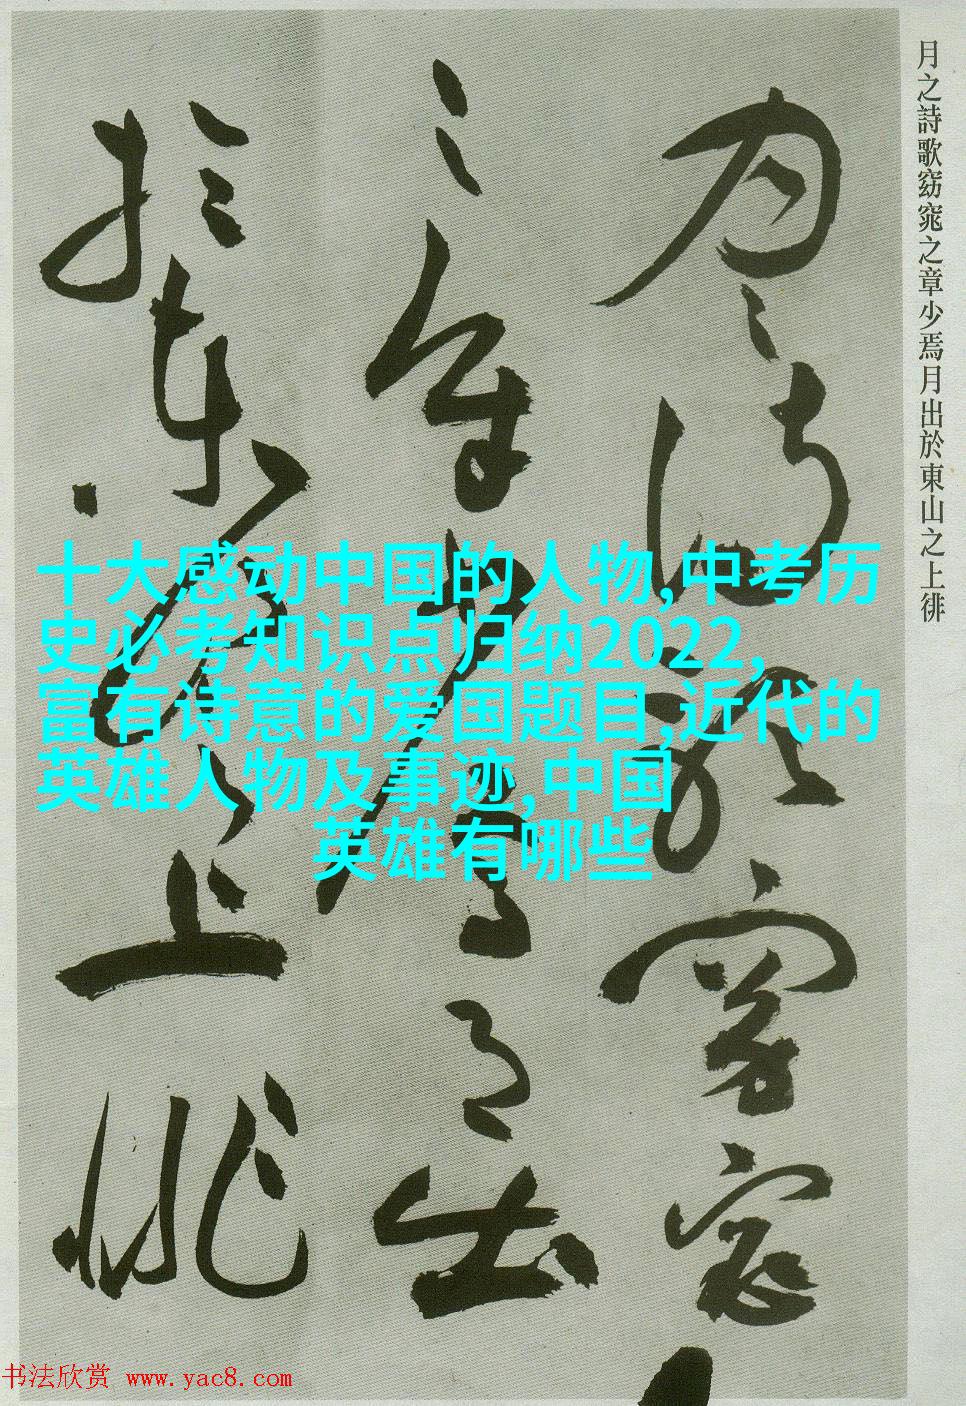 月之詩歌窈窕之章少焉月出於東山之上徘
月之詩歌窈窕
之章少焉月出
於東山之上徘
十大感动中国的人物,中考历
史必考知识点归纳2022,
富有诗意的爱国题目,近代的
英雄人物及事迹,中国
英雄有哪些
书法欣赏 www.yac8.com